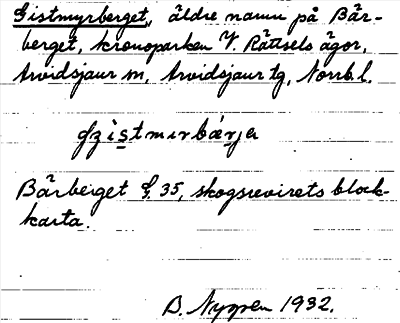 Gistmyrberget, äldre namn på Bär-
berget, kronoparken V. Rättsels ägor,
Arvidsjaur sn, Arvidsjaur tg, Norrb. l.
Bärberget S. 35, skogsrevirets block-
karta.
B. Nygren 1932.